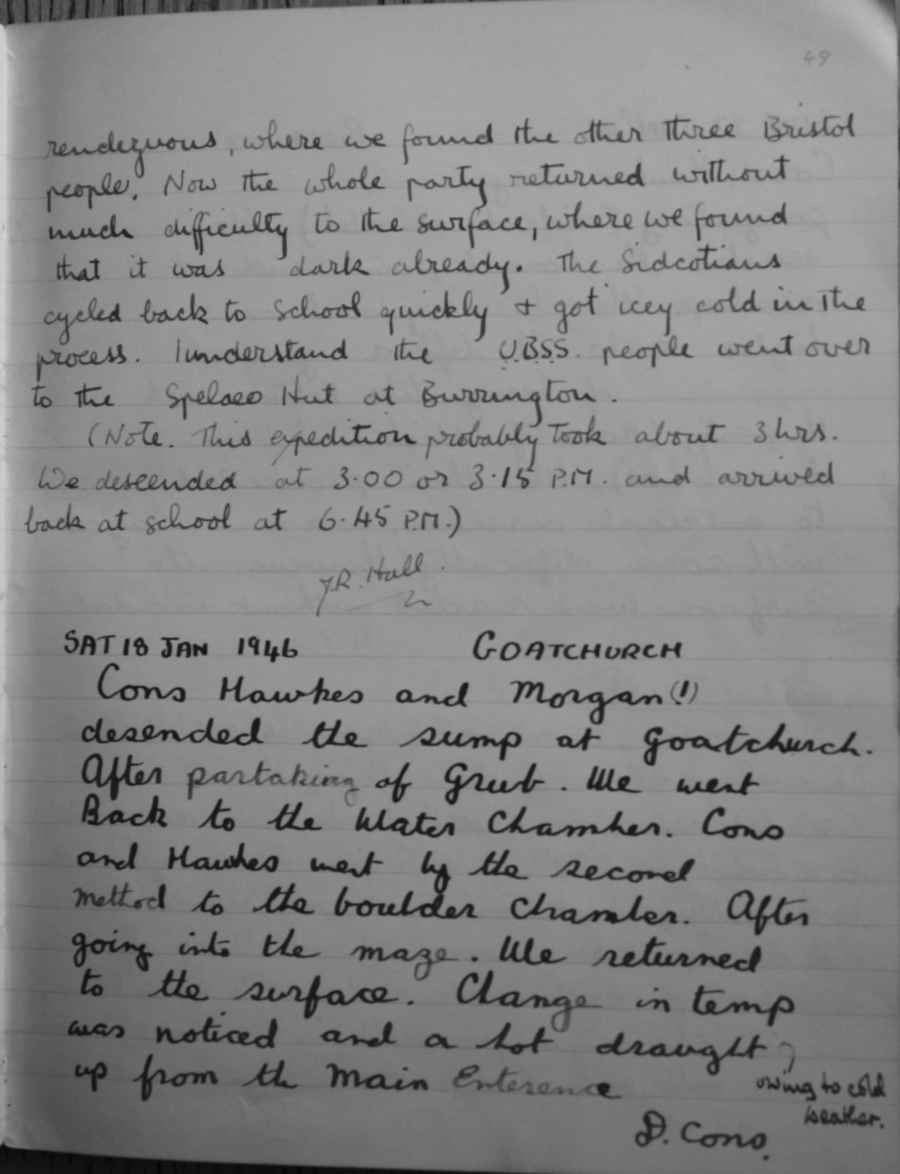 49
rendezvous, where we found the other three Bristol
people. Now the whole party returned without
much difficulty to the surface, where we found
that it was dark already. The Sidcotians
cycled back to School quickly & got icey cold in the
process. I understand the U.B.S.S. people went over
to the Spelaeo Hut at Burrington.
(Note. This expedition probably took about 3 hrs.
We descended at 3.00 or 3.15 P.M. and arrived
back at school at 6.45 P.M.)
J.R. Hall.
SAT 18 JAN 1946 GOATCHURCH
Cons Hawkes and Morgan (!)
desended the sump at Goatchurch.
After partaking of Grub. We went
Back to the Water Chamber. Cons
and Hawkes went by the second
method to the boulder Chamber. After
going into the maze. We returned
to the surface. Change in temp
was noticed and a hot draught
up from the Main Enterence
owing to cold
weather.
D. Cons.